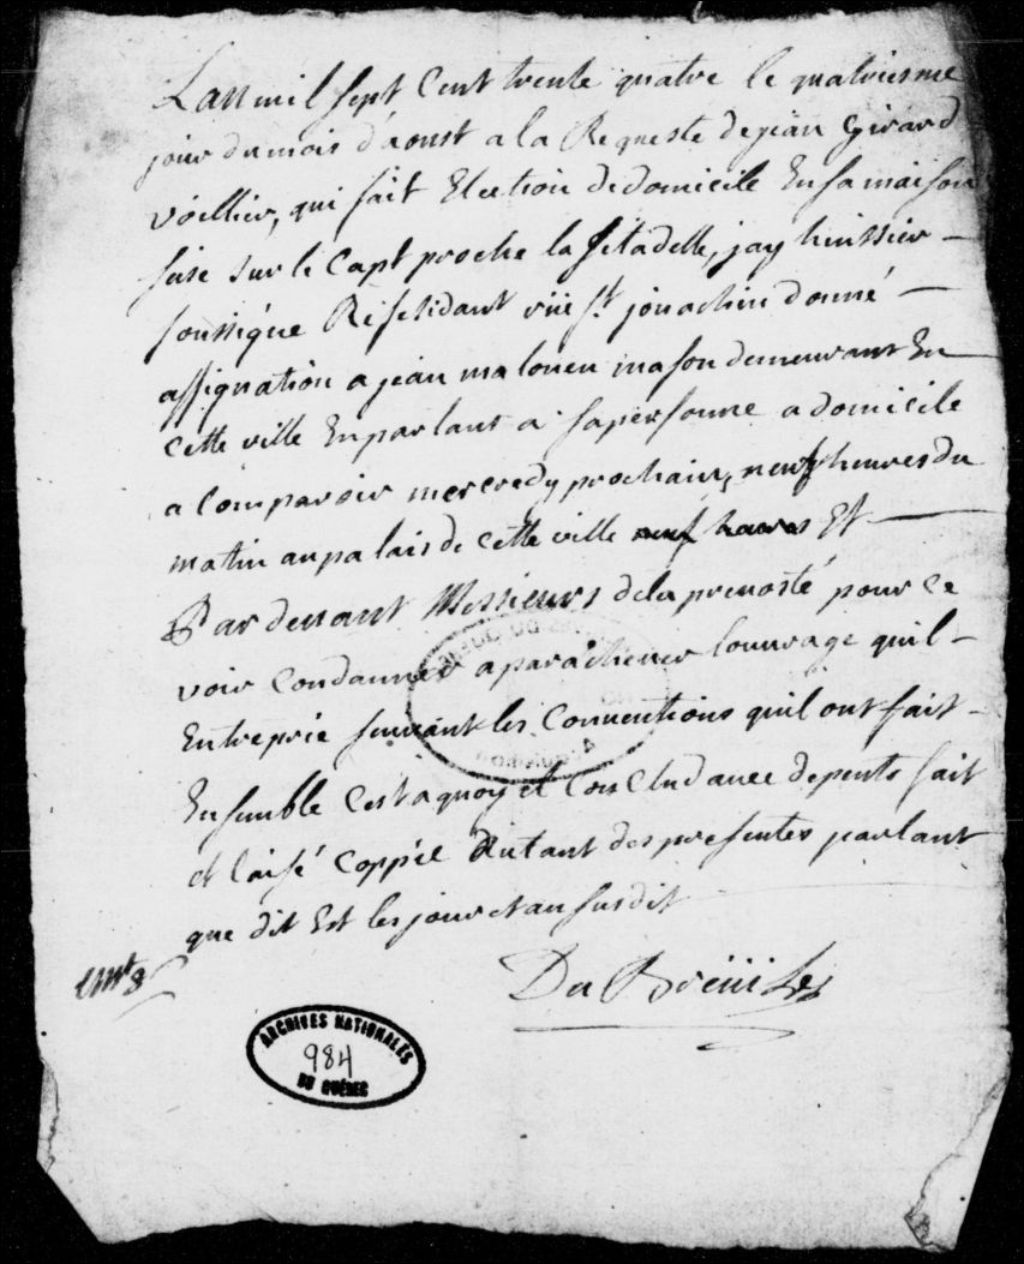 Lan mil sept Cent trente quatre le quatriesme
jour du mois daoust a la Requeste de jean Girard
voellier, qui fait Election de domicile En sa maison
sise sur le Capt proche la sitadelle, jay huissier -
soussigne Resesidant rüe st jouachin donné -
assignation a jean malouen mason demeurant En
cette ville En parlant a sa personne a domicile
a Comparoir mercredy prochain, neuf heures du
matin au palais de cette ville neuf heures Et
Par devant Messieurs de la prevosté pour ce
voir Condanner a parachever louvrage quil -
Entreprie suivant les Conventions quil ont fait -
Ensemble Cest a quoy et Concludavec depents fait
et laisé Coppie dutant des presentes parlant
que dit Est les jour et an susdit
Du Breüil
ARCHIVES NATIONALES
984
DU QUÉBEC